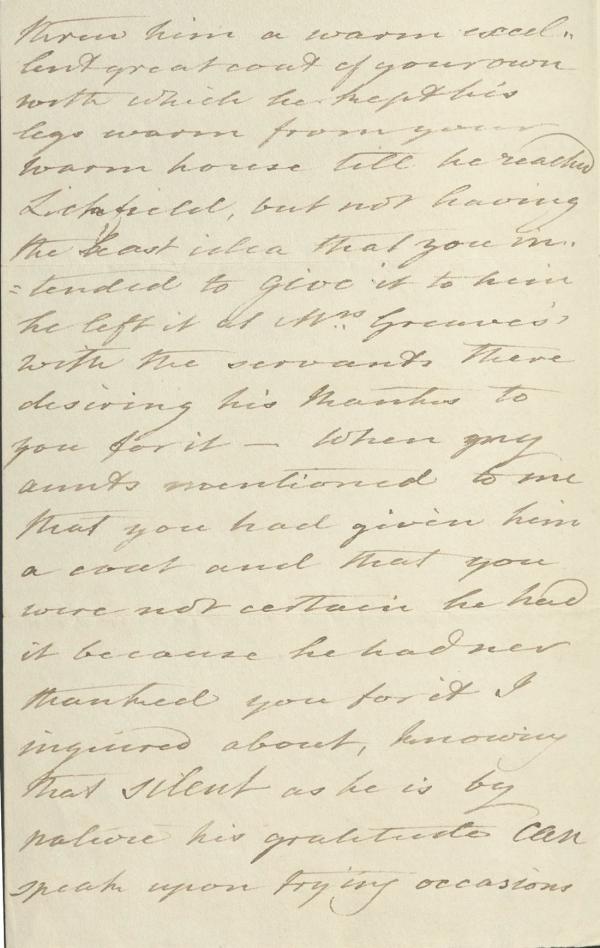 threw him a warm excel-
lent great coat of your own
with which he kept his
legs warm from your
warm house till he reached
Lichfield, but not having
the least idea that you in-
=tended to give it to him
he left it at Mrs Greaves's
with the servants there
desiring his thanks to
you for it — When my
aunts mentioned to me
that you had given him
a coat and that you
were not certain he had
it because he had ner
thanked you for it I
inquired about, knowing
that silent as he is by
nature his gratitude can
speak upon trying occasions